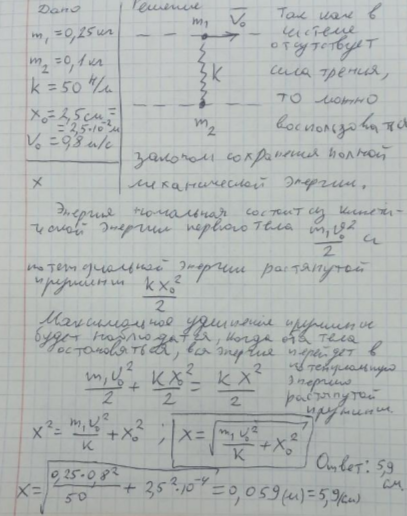 Дано
m₁ = 0,25 кг
m₂ = 0,1 кг
k = 50 Н/м
x₀ = 2,5 см =
= 2,5·10⁻² м
V₀ = 0,8 м/с
x
Решение
m₁ V₀
k
m₂
Так как в
системе
отсутствует
сила трения,
то можно
воспользоваться
законом сохранения полной
механической энергии.
Энергия начальная состоит из кинети-
ческой энергии первого тела m₁V₀²/2 и
потенциальной энергии растянутой
пружины kx₀²/2
Максимальное удлинение пружины
будет наблюдаться, когда оба тела
остановяться, вся энергия перейдет в
потенциальную
энергию
растянутой
пружины.
m₁V₀²/2 + kx₀²/2 = kx²/2
x² = m₁V₀²/k + x₀² ; x = √(m₁V₀²/k + x₀²)
Ответ: 5,9
см.
x = √(0,25·0,8²/50 + 2,5²·10⁻⁴) = 0,059 (м) = 5,9 (см)